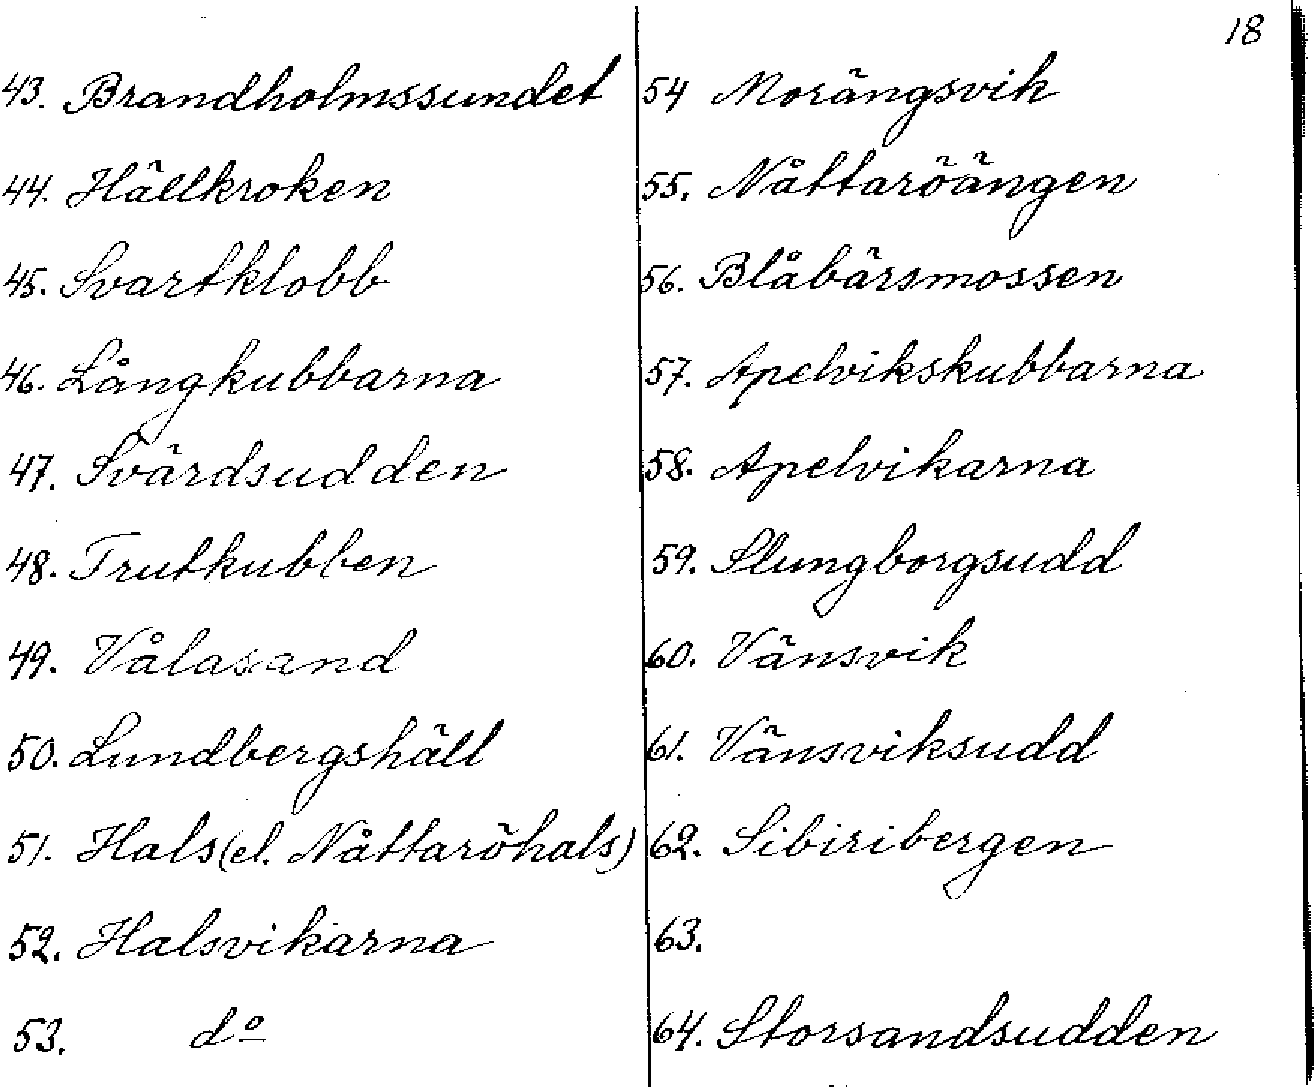 18
43. Brandholmssundet
44. Hällkroken
45. Svartklobb
46. Långkubbarna
47. Svärdsudden
48. Trutkubben
49. Vålasand
50. Lundbergshäll
51. Hals (el. Nåttaröhals)
52. Halsvikarna
53. dº
54 Morängsvik
55. Nåttaröängen
56. Blåbärsmossen
57. Apelvikskubbarna
58. Apelvikarna
59. Slungborgsudd
60. Vänsvik
61. Vänsviksudd
62. Sibiribergen
63.
64. Storsandsudden